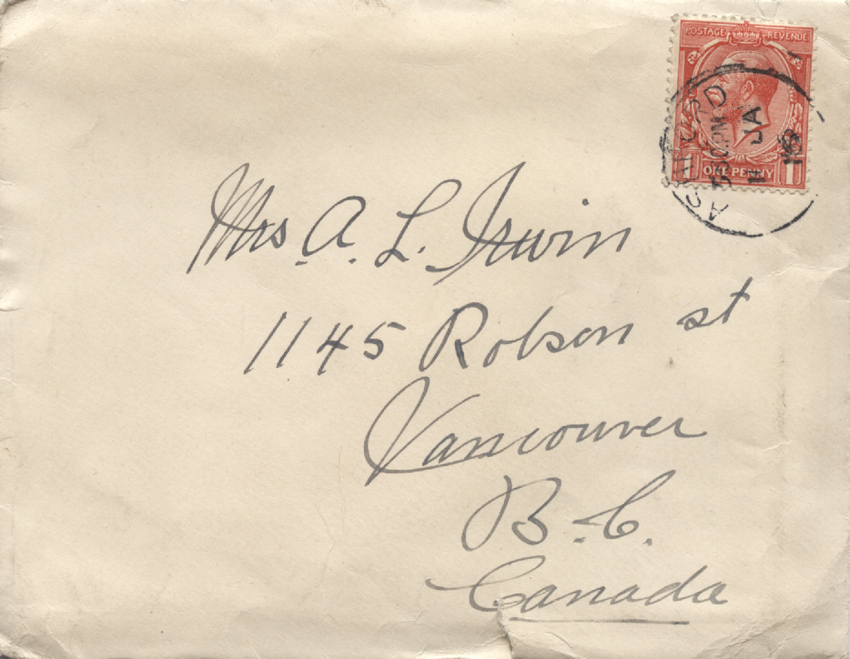 POSTAGE REVENUE
1 ONE PENNY 1
ASHFORD
Mrs A. L. Irwin
1145 Robson st
Vancouver
B.C.
Canada